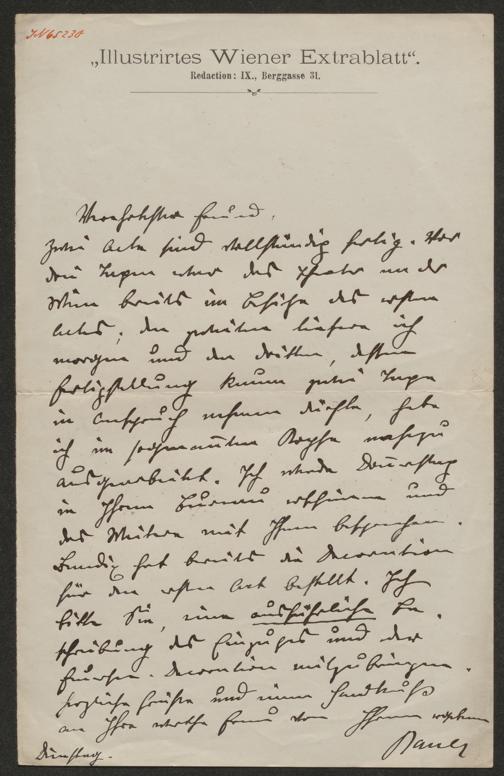 JN 65238
„Illustrirtes Wiener Extrablatt“.
Redaction: IX., Berggasse 31.
Verehrtester Freund,
zwei Acte sind vollständig fertig. Vor
drei Tagen war das Theater an der
Wien bereits im Besitze des ersten
Actes; den zweiten liefere ich
morgen und den dritten, dessen
Fertigstellung kaum zwei Tage
in Anspruch nehmen dürfte, habe
ich im sogenannten Kopfe nahezu
ausgearbeitet. Ich werde Donnerstag
in Ihrem Bureau erscheinen und
das Weitere mit Ihnen besprechen.
hat bereits die Decoration
für den ersten Act bestellt. Ich
bitte Sie, eine ausführliche Be-
schreibung des Einzuges und der
Decoration mitzubringen.
Herzliche Grüße und einen Handkuß
an Ihre werthe Frau von Ihrem
Dienstag.